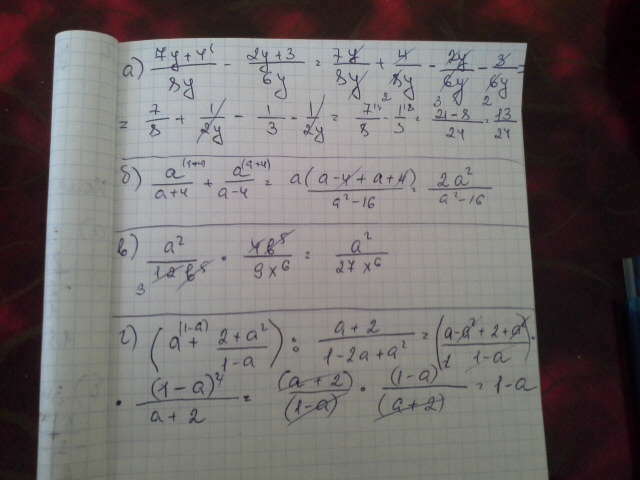 а) (7y+4)/8y - (2y+3)/6y = 7y/8y + 4/8y - 2y/6y - 3/6y =
= 7/8 + 1/2y - 1/3 - 1/2y = 7/8 - 1/3 = (21-8)/24 = 13/24
б) a/(a+4) + a/(a-4) = a(a-4+a+4)/(a²-16) = 2a²/(a²-16)
в) a²/12b⁵ · 4b⁵/9x⁶ = a²/27x⁶
г) (a^(1-a) + (2+a²)/(1-a)) : (a+2)/(1-2a+a²) = ((a-a²+2+a²)/(1-a)) ·
· (1-a)²/(a+2) = (a+2)/(1-a) · (1-a)²/(a+2) = 1-a